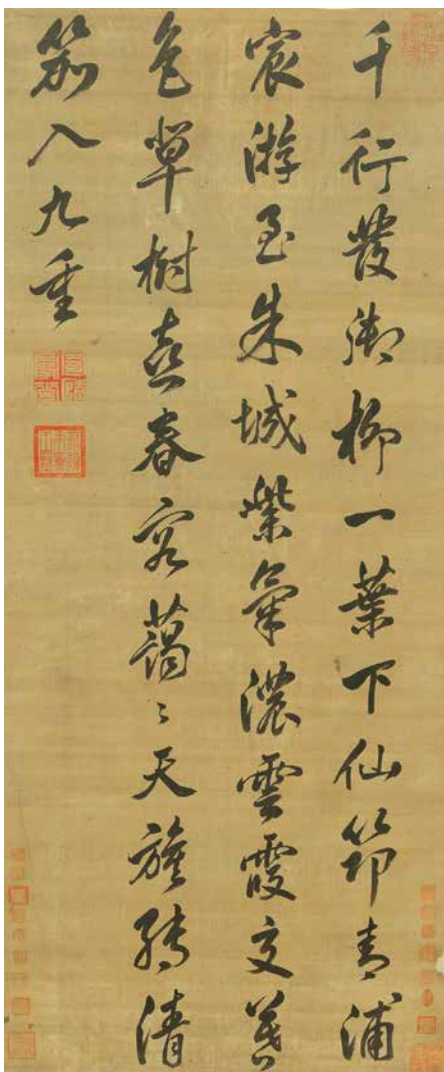 千行發御柳一葉下仙筇青浦
宸游至朱城紫氣濃雲霞交暮
色草樹喜春容藹〻天旗轉清
笳入九重